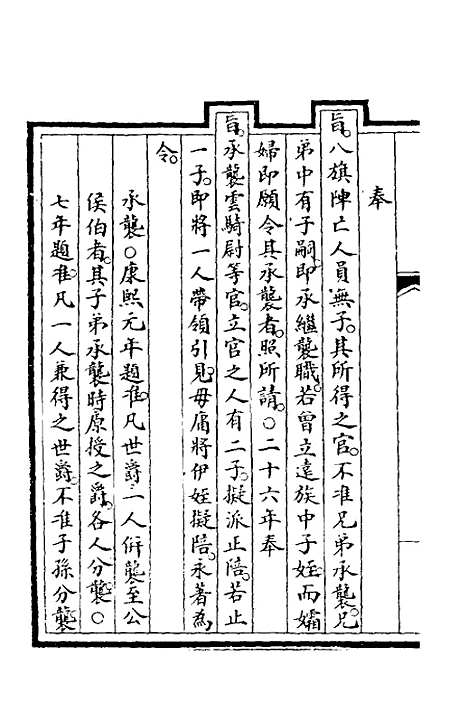 奉
旨。八旗陣亡人員無子。其所得之官。不准兄弟承襲。兄
弟中有子嗣。即承繼襲職。若曾立遠族中子姪。而孀
婦即願令其承襲者。照所請。○二十六年奉
旨。承襲雲騎尉等官。立官之人有二子。擬派正陪。若止
一子。即將一人帶領引見。毋庸將伊姪擬陪。永著為
令。
承襲○康熙元年題准。凡世爵二人併襲至公
侯伯者。其子弟承襲時。原授之爵。各人分襲。○
七年題准。凡一人兼得之世爵。不准子孫分襲